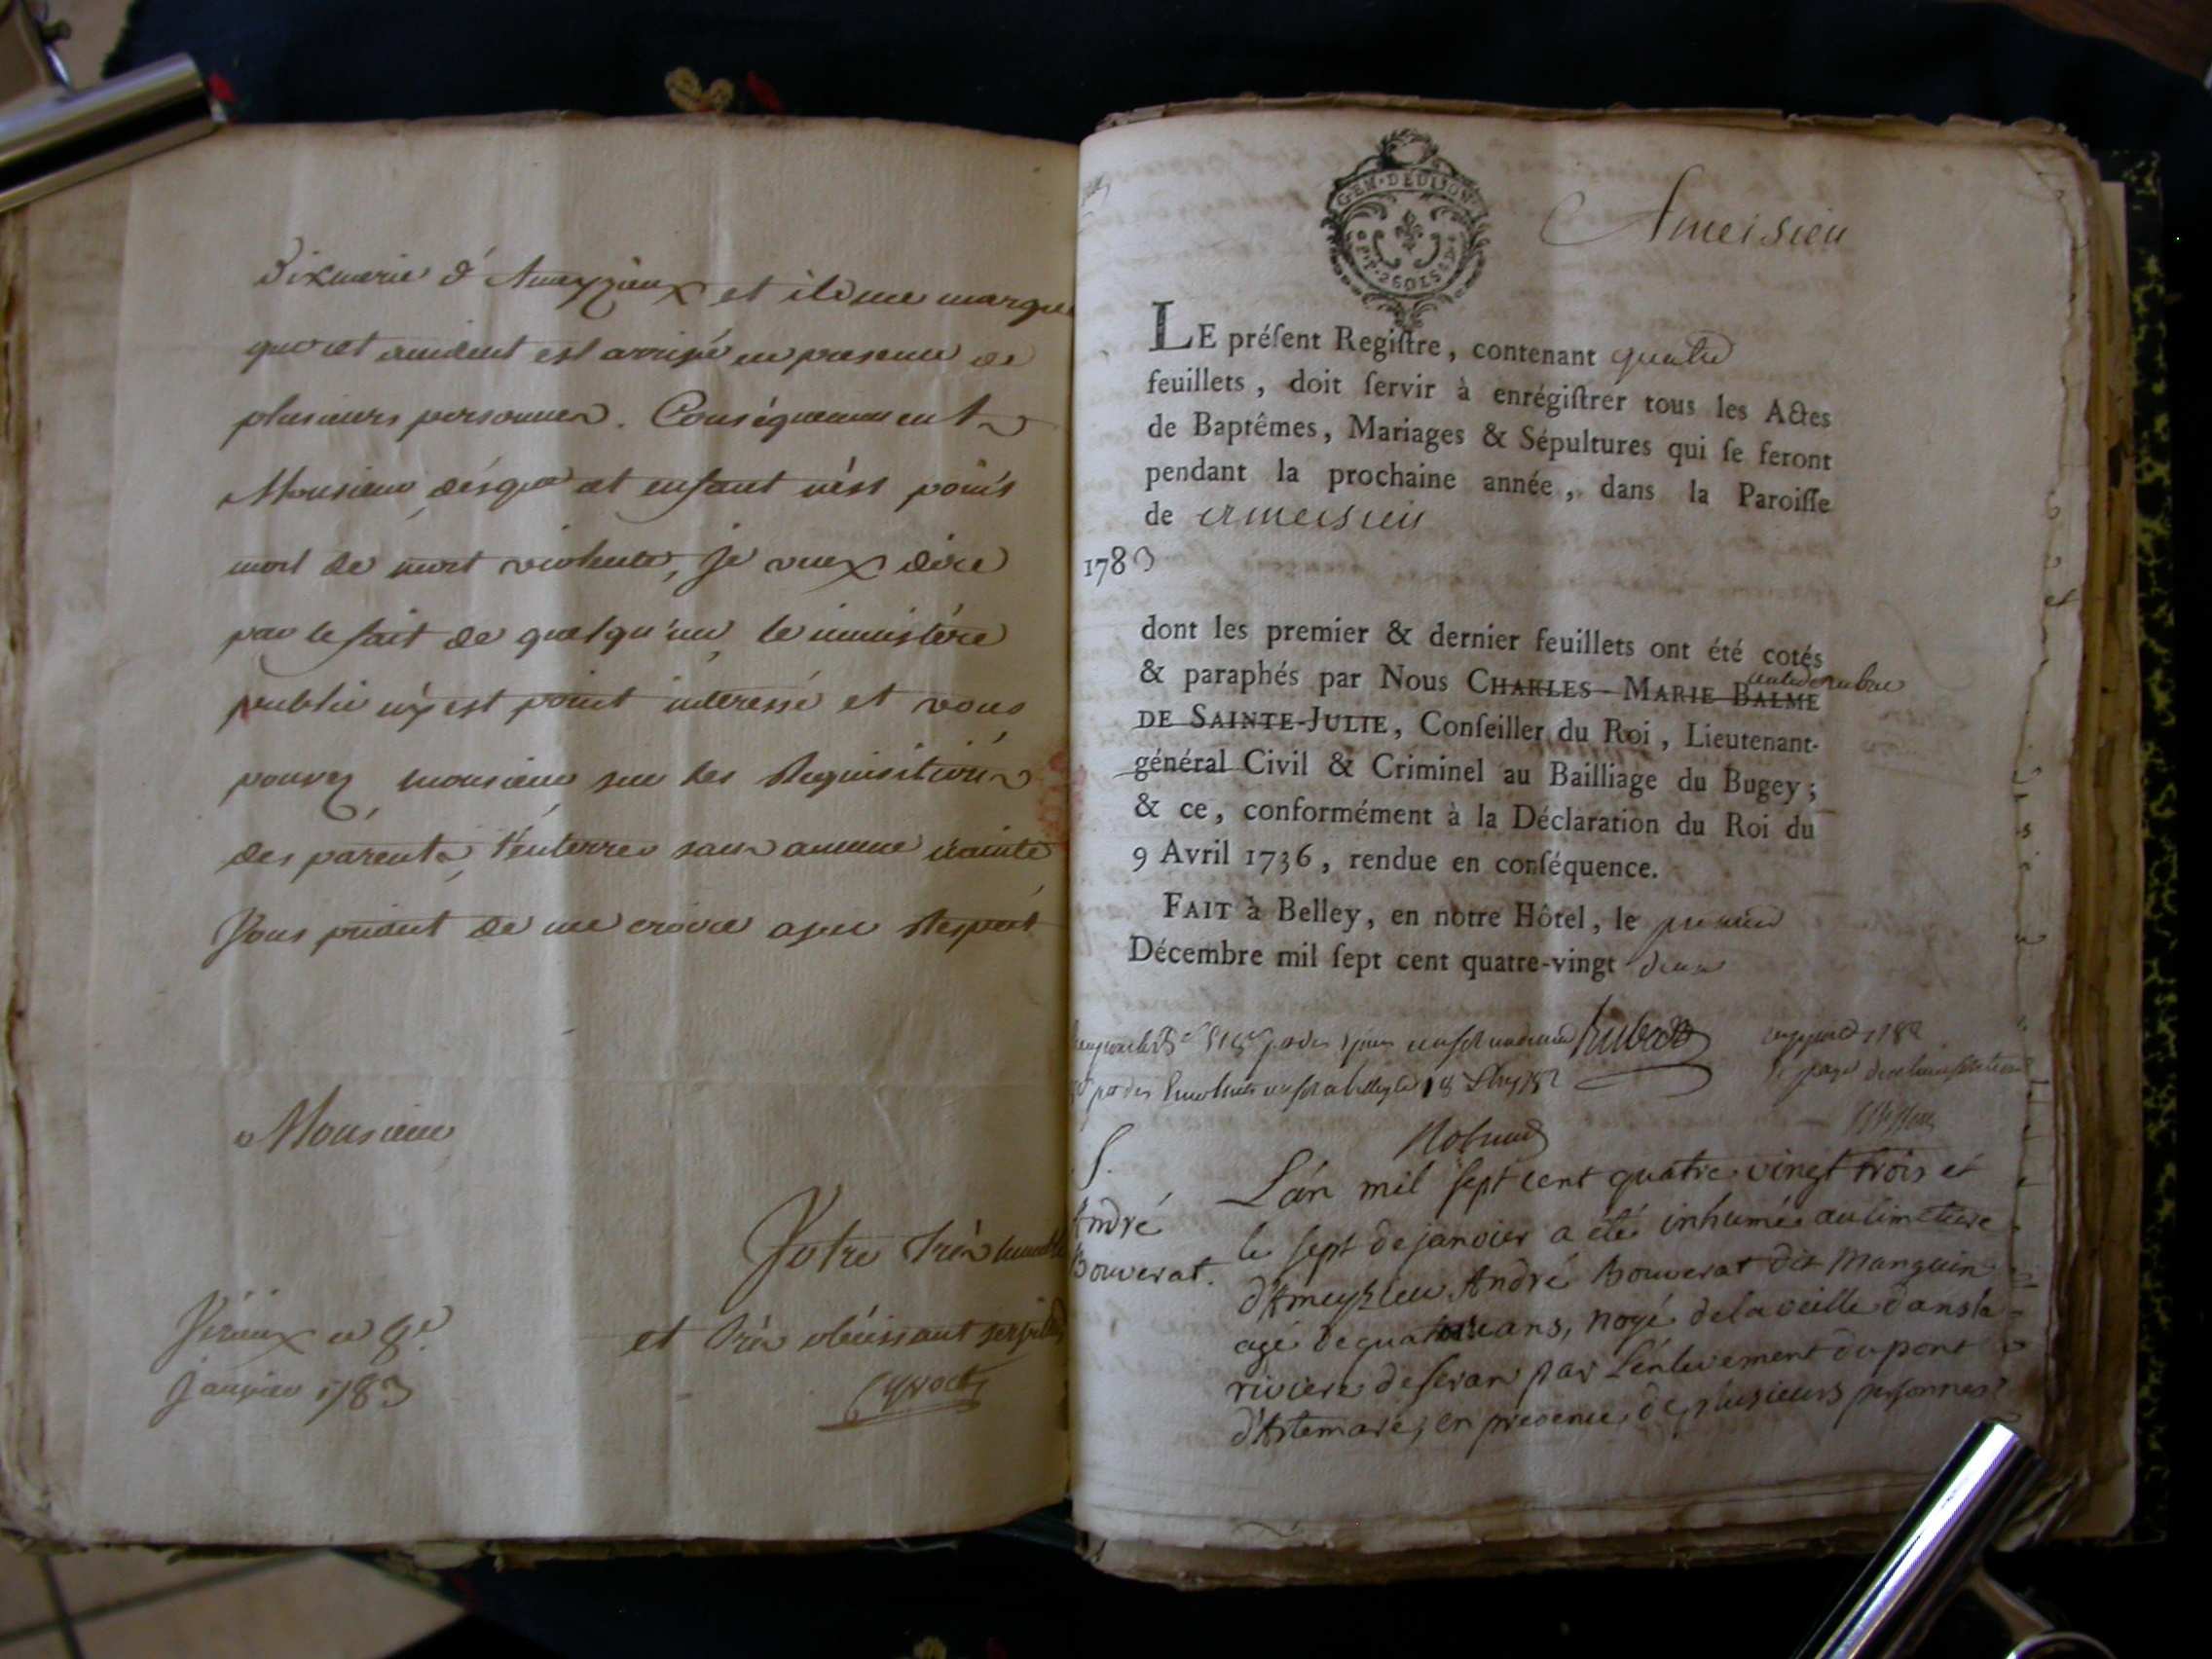 Dixmerie d'Ameyzieux et il me marque
que cet accident est arrivé en presence de
plusieurs personnes. Conséquemment
Monsieur, désque cet enfant n'est point
mort de mort violente, je veux dire
par le fait de quelqu'un, le ministère
public n'y est point interessé et vous
pouvez, monsieur sur les Requisitions
des parents, l'enterrer sans aucune crainte
Vous priant de me croire avec Respect
Monsieur
Votre très humble
et très obéissant serviteur
Virieux ce 8e
janvier 1783
GEN·DE DIJON
Ameisieu
LE préſent Regiſtre, contenant quatre
feuillets, doit ſervir à enrégiſtrer tous les Actes
de Baptêmes, Mariages & Sépultures qui ſe feront
pendant la prochaine année, dans la Paroiſſe
de Ameisieu
1783
dont les premier & dernier feuillets ont été cotés
& paraphés par Nous CHARLES-MARIE BALME
DE SAINTE-JULIE, Conſeiller du Roi, Lieutenant-
général Civil & Criminel au Bailliage du Bugey;
& ce, conformément à la Déclaration du Roi du
9 Avril 1736, rendue en conſéquence.
FAIT à Belley, en notre Hôtel, le premier
Décembre mil ſept cent quatre-vingt deux
S.
André
Bouverat.
L'an mil sept cent quatre vingt trois et
le sept de janvier a été inhumée au cimetiere
d'Ameyzieu André Bouverat dit Manguin
agé de quatre ans, noyé de la veille dans la
riviere de seran par l'enlevement du pont
d'Artemare, en presence de plusieurs personnes